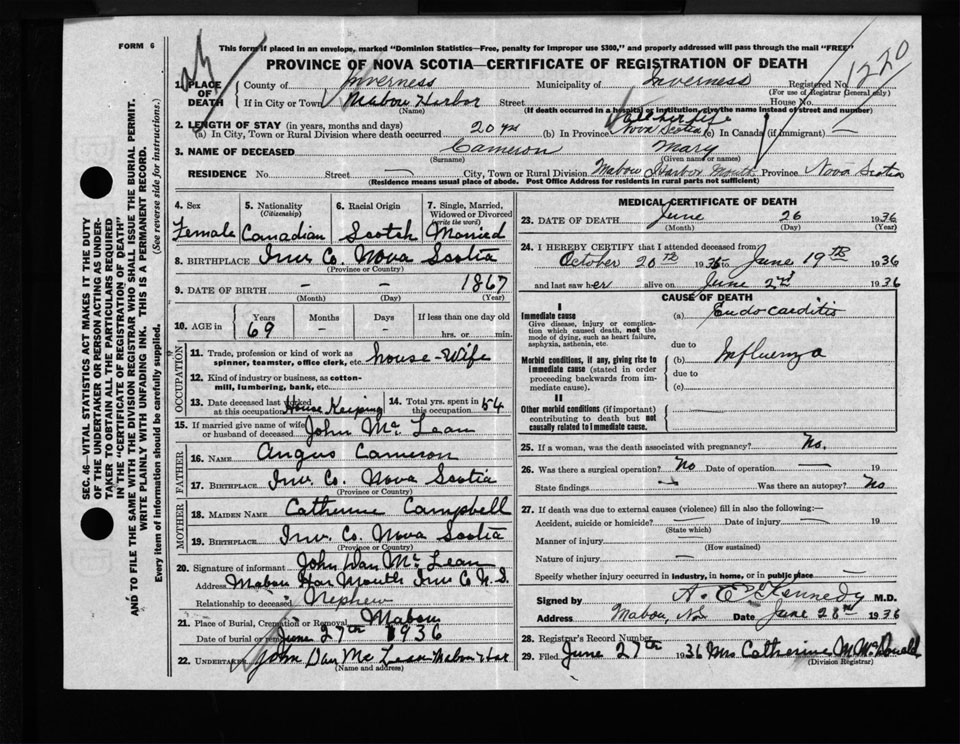 FORM 6
This form if placed in an envelope, marked "Dominion Statistics—Free, penalty for improper use $300," and properly addressed will pass through the mail "FREE"
PROVINCE OF NOVA SCOTIA—CERTIFICATE OF REGISTRATION OF DEATH
1220
1. PLACE OF DEATH County of Inverness Municipality of Inverness Registered No.
(For use of Registrar General only)
If in City or Town Mabou Harbor Street House No.
(Name) (If death occurred in a hospital or institution, give the name instead of street and number)
2. LENGTH OF STAY (in years, months and days)
(a) In City, Town or Rural Division where death occurred 20 yrs (b) In Province Nova Scotia (c) In Canada (if immigrant) —
3. NAME OF DECEASED Cameron Mary
(Surname) (Given name or names)
RESIDENCE No. Street — City, Town or Rural Division Mabou Harbor Mouth Province Nova Scotia
(Residence means usual place of abode. Post Office Address for residents in rural parts not sufficient)
SEC. 46—VITAL STATISTICS ACT MAKES IT THE DUTY
OF THE UNDERTAKER OR PERSON ACTING AS UNDER-
TAKER TO OBTAIN ALL THE PARTICULARS REQUIRED
IN THE "CERTIFICATE OF REGISTRATION OF DEATH"
AND TO FILE THE SAME WITH THE DIVISION REGISTRAR WHO SHALL ISSUE THE BURIAL PERMIT.
WRITE PLAINLY WITH UNFADING INK. THIS IS A PERMANENT RECORD.
Every item of information should be carefully supplied. (See reverse side for instructions.)
4. Sex 5. Nationality (Citizenship) 6. Racial Origin 7. Single, Married, Widowed or Divorced (write the word)
Female Canadian Scotch Married
8. BIRTHPLACE Inv. Co. Nova Scotia
(Province or Country)
9. DATE OF BIRTH — — 1867
(Month) (Day) (Year)
10. AGE in Years Months Days If less than one day old
69 — — hrs. or min.
OCCUPATION
11. Trade, profession or kind of work as spinner, teamster, office clerk, etc. house-wife
12. Kind of industry or business, as cotton-mill, lumbering, bank, etc.
13. Date deceased last worked at this occupation House Keeping 14. Total yrs. spent in this occupation 54
15. If married give name of wife or husband of deceased John Mc Lean
FATHER
16. NAME Angus Cameron
17. BIRTHPLACE Inv. Co. Nova Scotia
(Province or Country)
MOTHER
18. MAIDEN NAME Catherine Campbell
19. BIRTHPLACE Inv. Co. Nova Scotia
(Province or Country)
20. Signature of informant John Dan Mc Lean
Address Mabou Har Mouth Inv Co N.S.
Relationship to deceased Nephew
21. Place of Burial, Cremation or Removal Mabou
Date of burial or removal June 27th 1936
22. UNDERTAKER John Dan Mc Lean Mabou Har
(Name and address)
MEDICAL CERTIFICATE OF DEATH
23. DATE OF DEATH June 26 1936
(Month) (Day) (Year)
24. I HEREBY CERTIFY that I attended deceased from
October 20th to June 19th 1936
and last saw her alive on June 2nd 1936
CAUSE OF DEATH
I
Immediate cause (a) Endocarditis
Give disease, injury or complication which caused death, not the mode of dying, such as heart failure, asphyxia, asthenia, etc.
due to
Morbid conditions, if any, giving rise to immediate cause (stated in order proceeding backwards from immediate cause). (b) Influenza
due to
(c)
II
Other morbid conditions (if important) contributing to death but not causally related to immediate cause.
25. If a woman, was the death associated with pregnancy? No.
26. Was there a surgical operation? No Date of operation — 19
State findings — Was there an autopsy? No
27. If death was due to external causes (violence) fill in also the following:—
Accident, suicide or homicide? — Date of injury — 19
(State which)
Manner of injury —
(How sustained)
Nature of injury —
Specify whether injury occurred in industry, in home, or in public place —
Signed by A. E. Kennedy M.D.
Address Mabou, N.S. Date June 28 1936
28. Registrar's Record Number
29. Filed June 27th 1936 Mrs Catherine M McDonald
(Division Registrar)